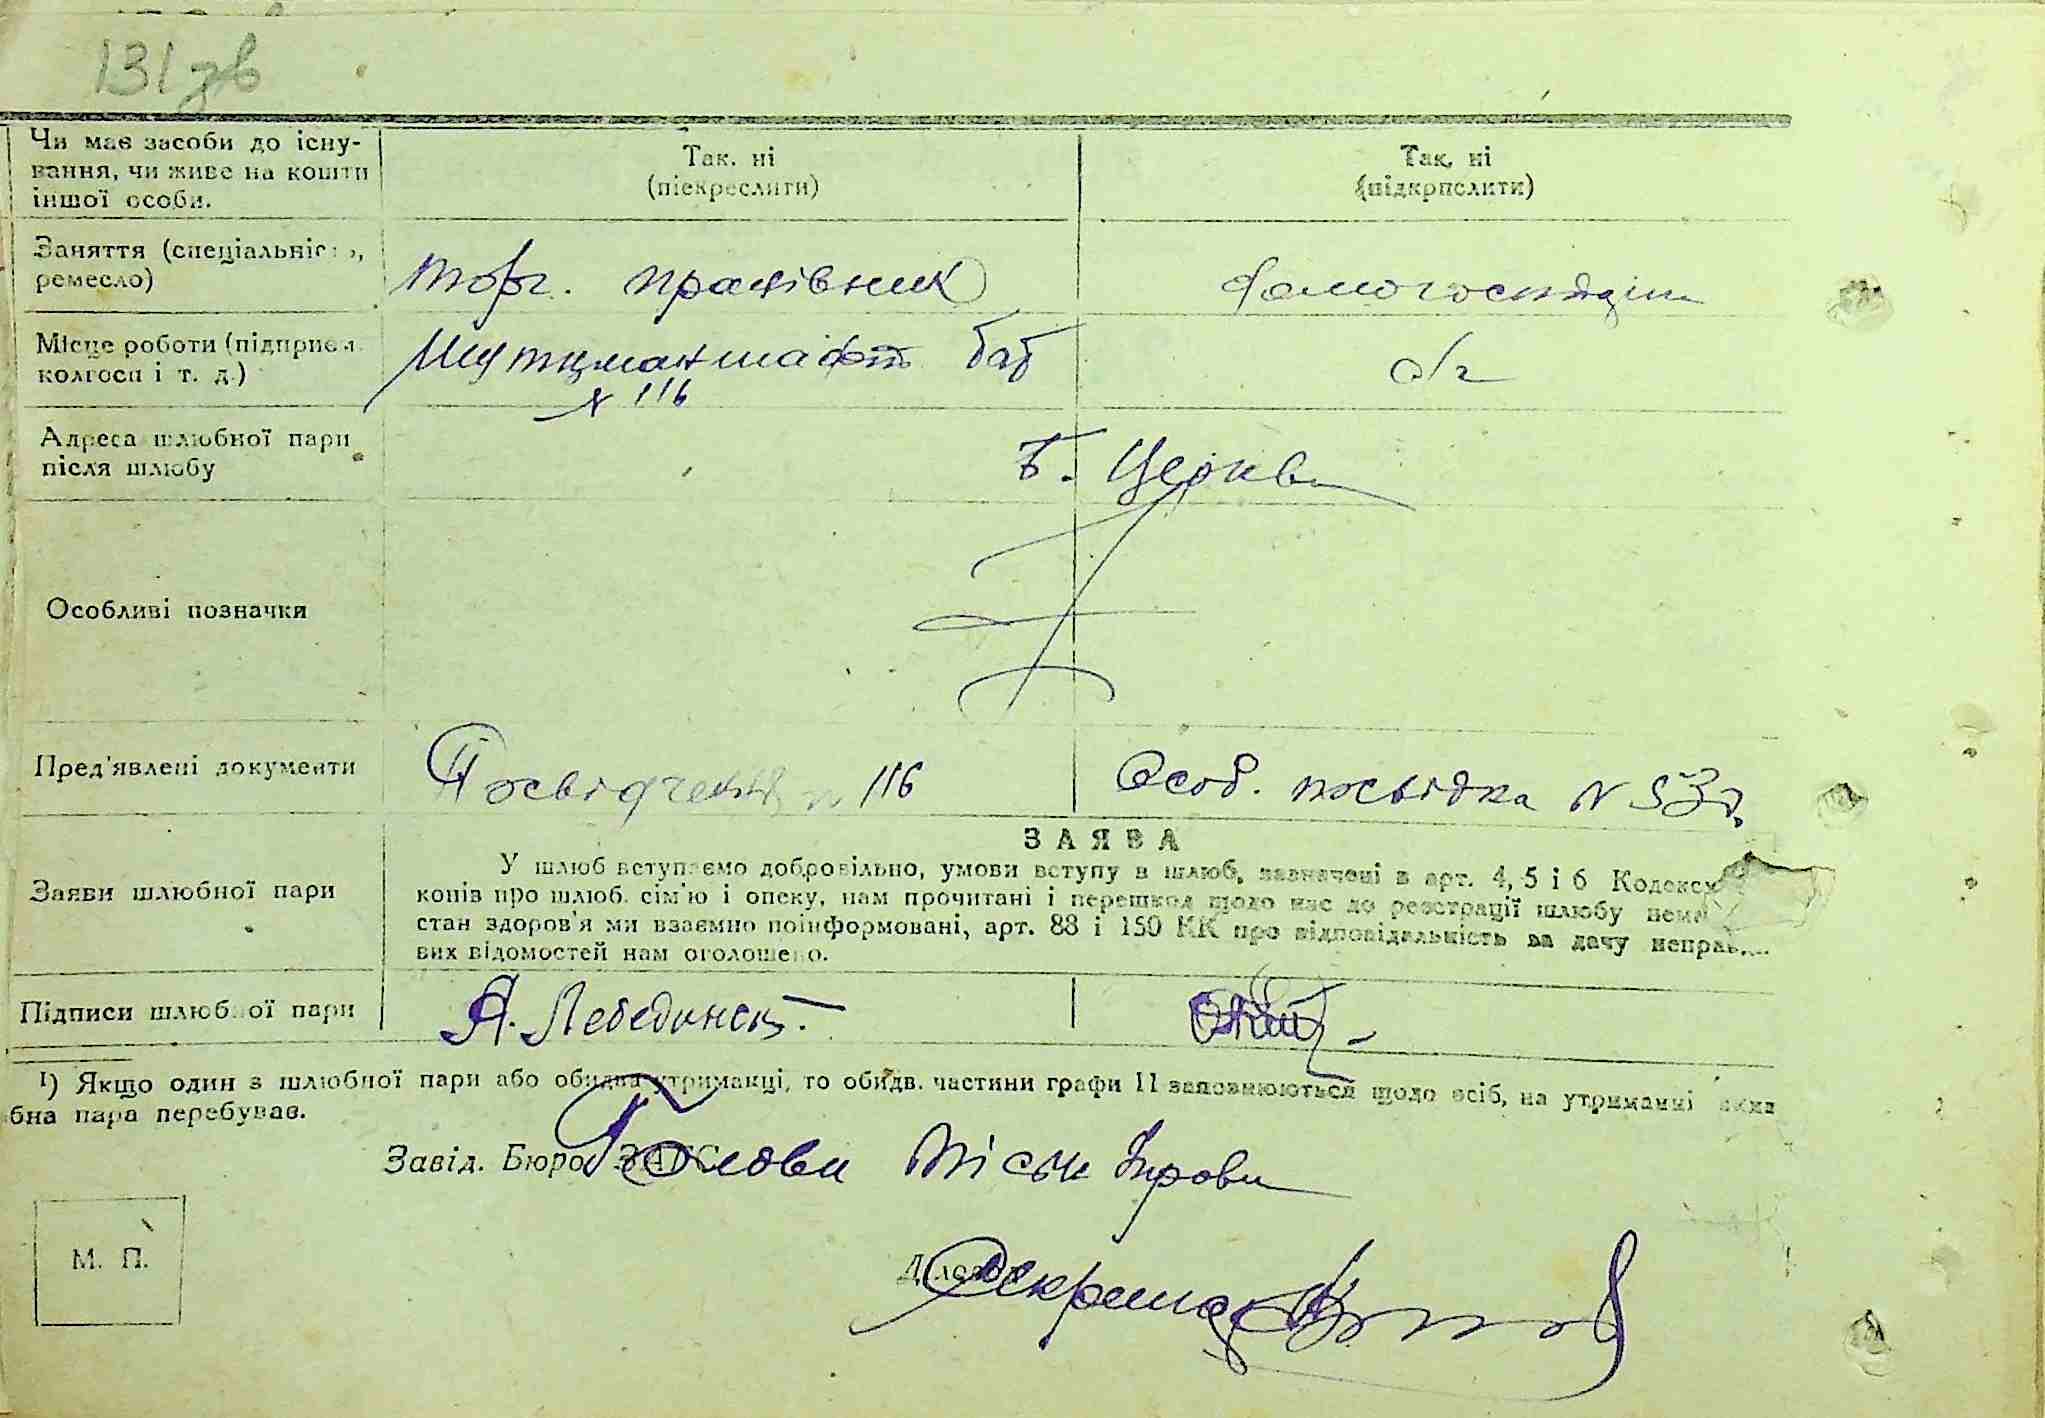 131 зв
Чи має засоби до існу-
вання, чи живе на кошти
іншої особи.
Так. ні
(піекреслити)
Так. ні
(підкрпслити)
Заняття (спеціальність,
ремесло)
Торг. працівник
домогосподін
Місце роботи (підприєм.
колгосп і т. д.)
Шутцманшафт баб
№ 116
д/г
Адреса шлюбної пари
після шлюбу
Б. Церква
Особливі позначки
Пред'явлені документи
Посвідчення № 116
Особ. посвідка № 53
ЗАЯВА
Заяви шлюбної пари
У шлюб вступаємо добровільно, умови вступу в шлюб, зазначені в арт. 4, 5 і 6 Кодексу
конів про шлюб. сім'ю і опеку, нам прочитані і перешкод щодо нас до реєстрації шлюбу нема
стан здоров'я ми взаємно поінформовані, арт. 88 і 150 КК про відповідальність за дачу неправ
вих відомостей нам оголошено.
Підписи шлюбної пари
А. Лебединськ
1) Якщо один з шлюбної пари або обидва утриманці, то обидв. частини графи 11 заповнюються щодо осіб, на утриманні яких
бна пара перебуває.
Завід. Бюро ЗАГС
Голова Міськ Управи
М. П.
Діловод
Секретар